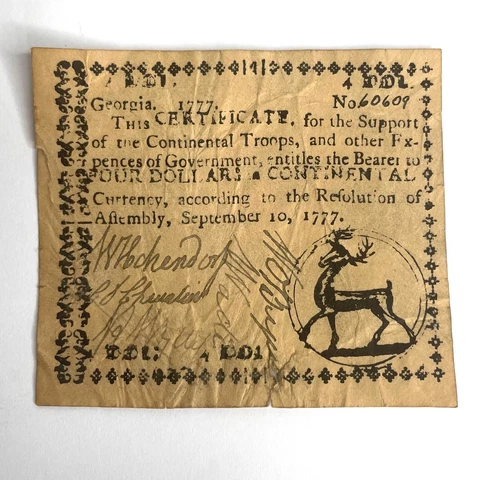 4 DOL.
Georgia, 1777. No 60609
THIS CERTIFICATE, for the Support
of the Continental Troops, and other Ex-
pences of Government, entitles the Bearer to
FOUR DOLLARS in CONTINENTAL
Currency, according to the Resolution of
Aſſembly, September 10, 1777.
4 DOL